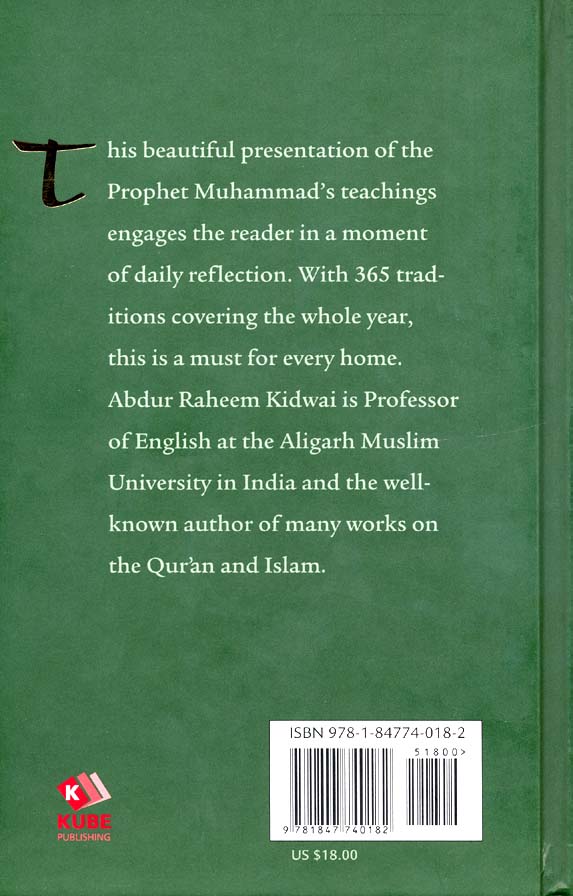 This beautiful presentation of the
Prophet Muhammad's teachings
engages the reader in a moment
of daily reflection. With 365 trad-
itions covering the whole year,
this is a must for every home.
Abdur Raheem Kidwai is Professor
of English at the Aligarh Muslim
University in India and the well-
known author of many works on
the Qur'an and Islam.
ISBN 978-1-84774-018-2
51800>
9 781847 740182
US $18.00
K
KUBE
PUBLISHING